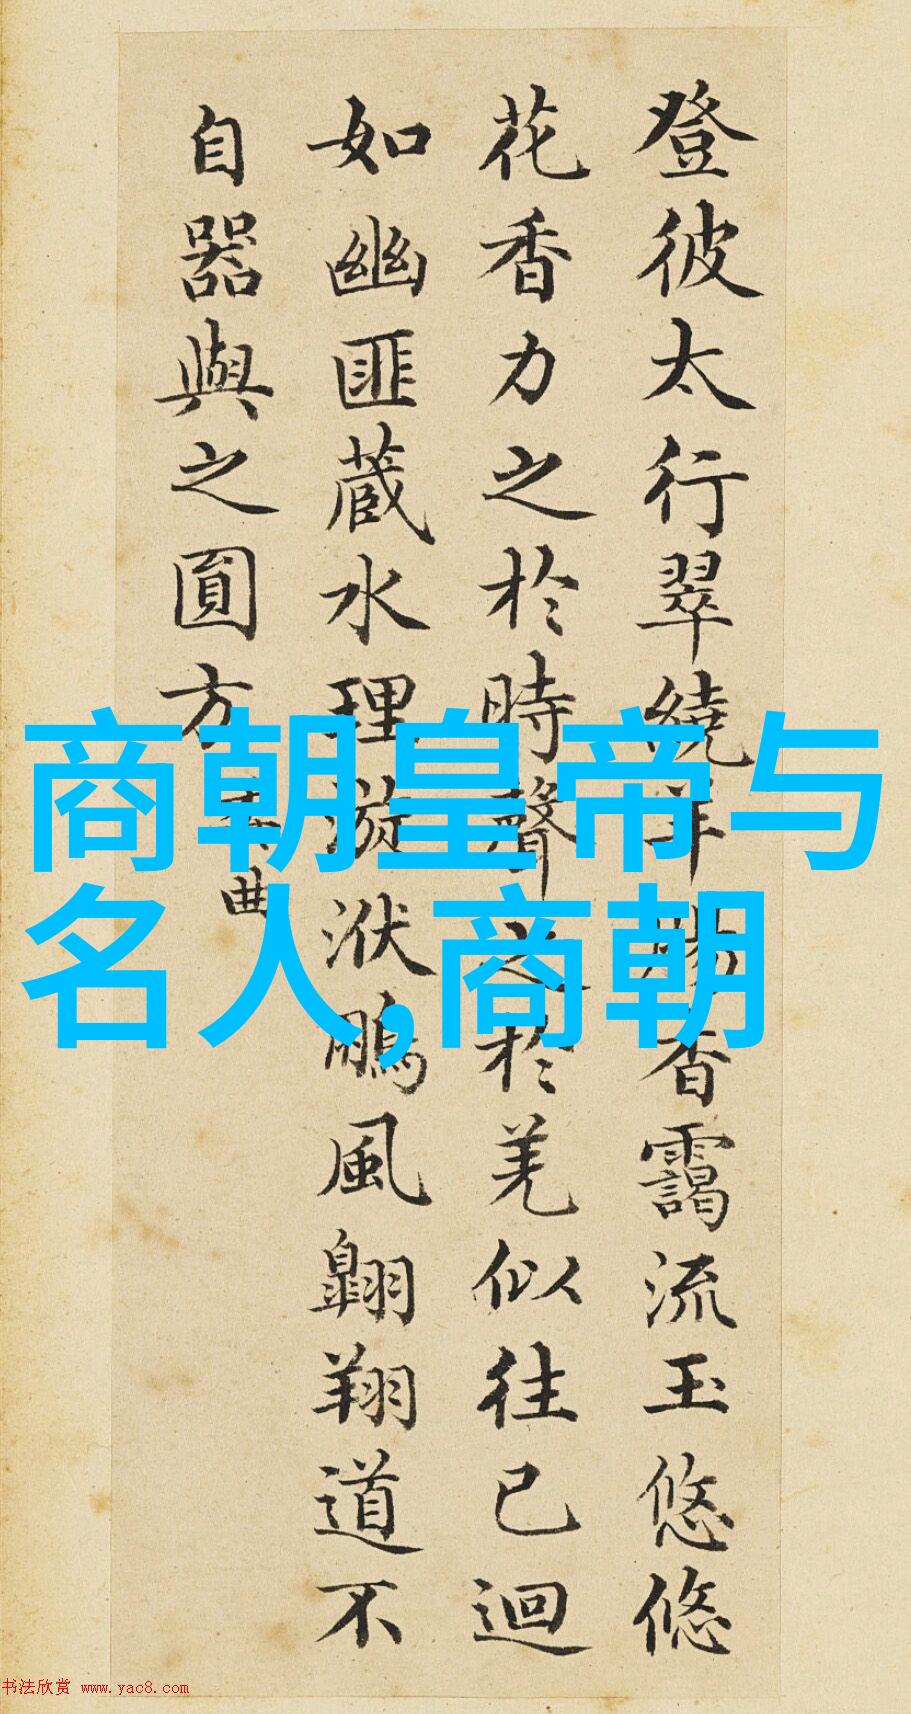 登彼太行翠繞羊腸杳靄流玉悠悠
花香力之於時聲之於羌似往已迴
如幽匪蔵水理漩洑鵬風翺翔道不
自器與之圓方 委曲
商朝皇帝与
名人,商朝
书法欣赏 www.yac8.com